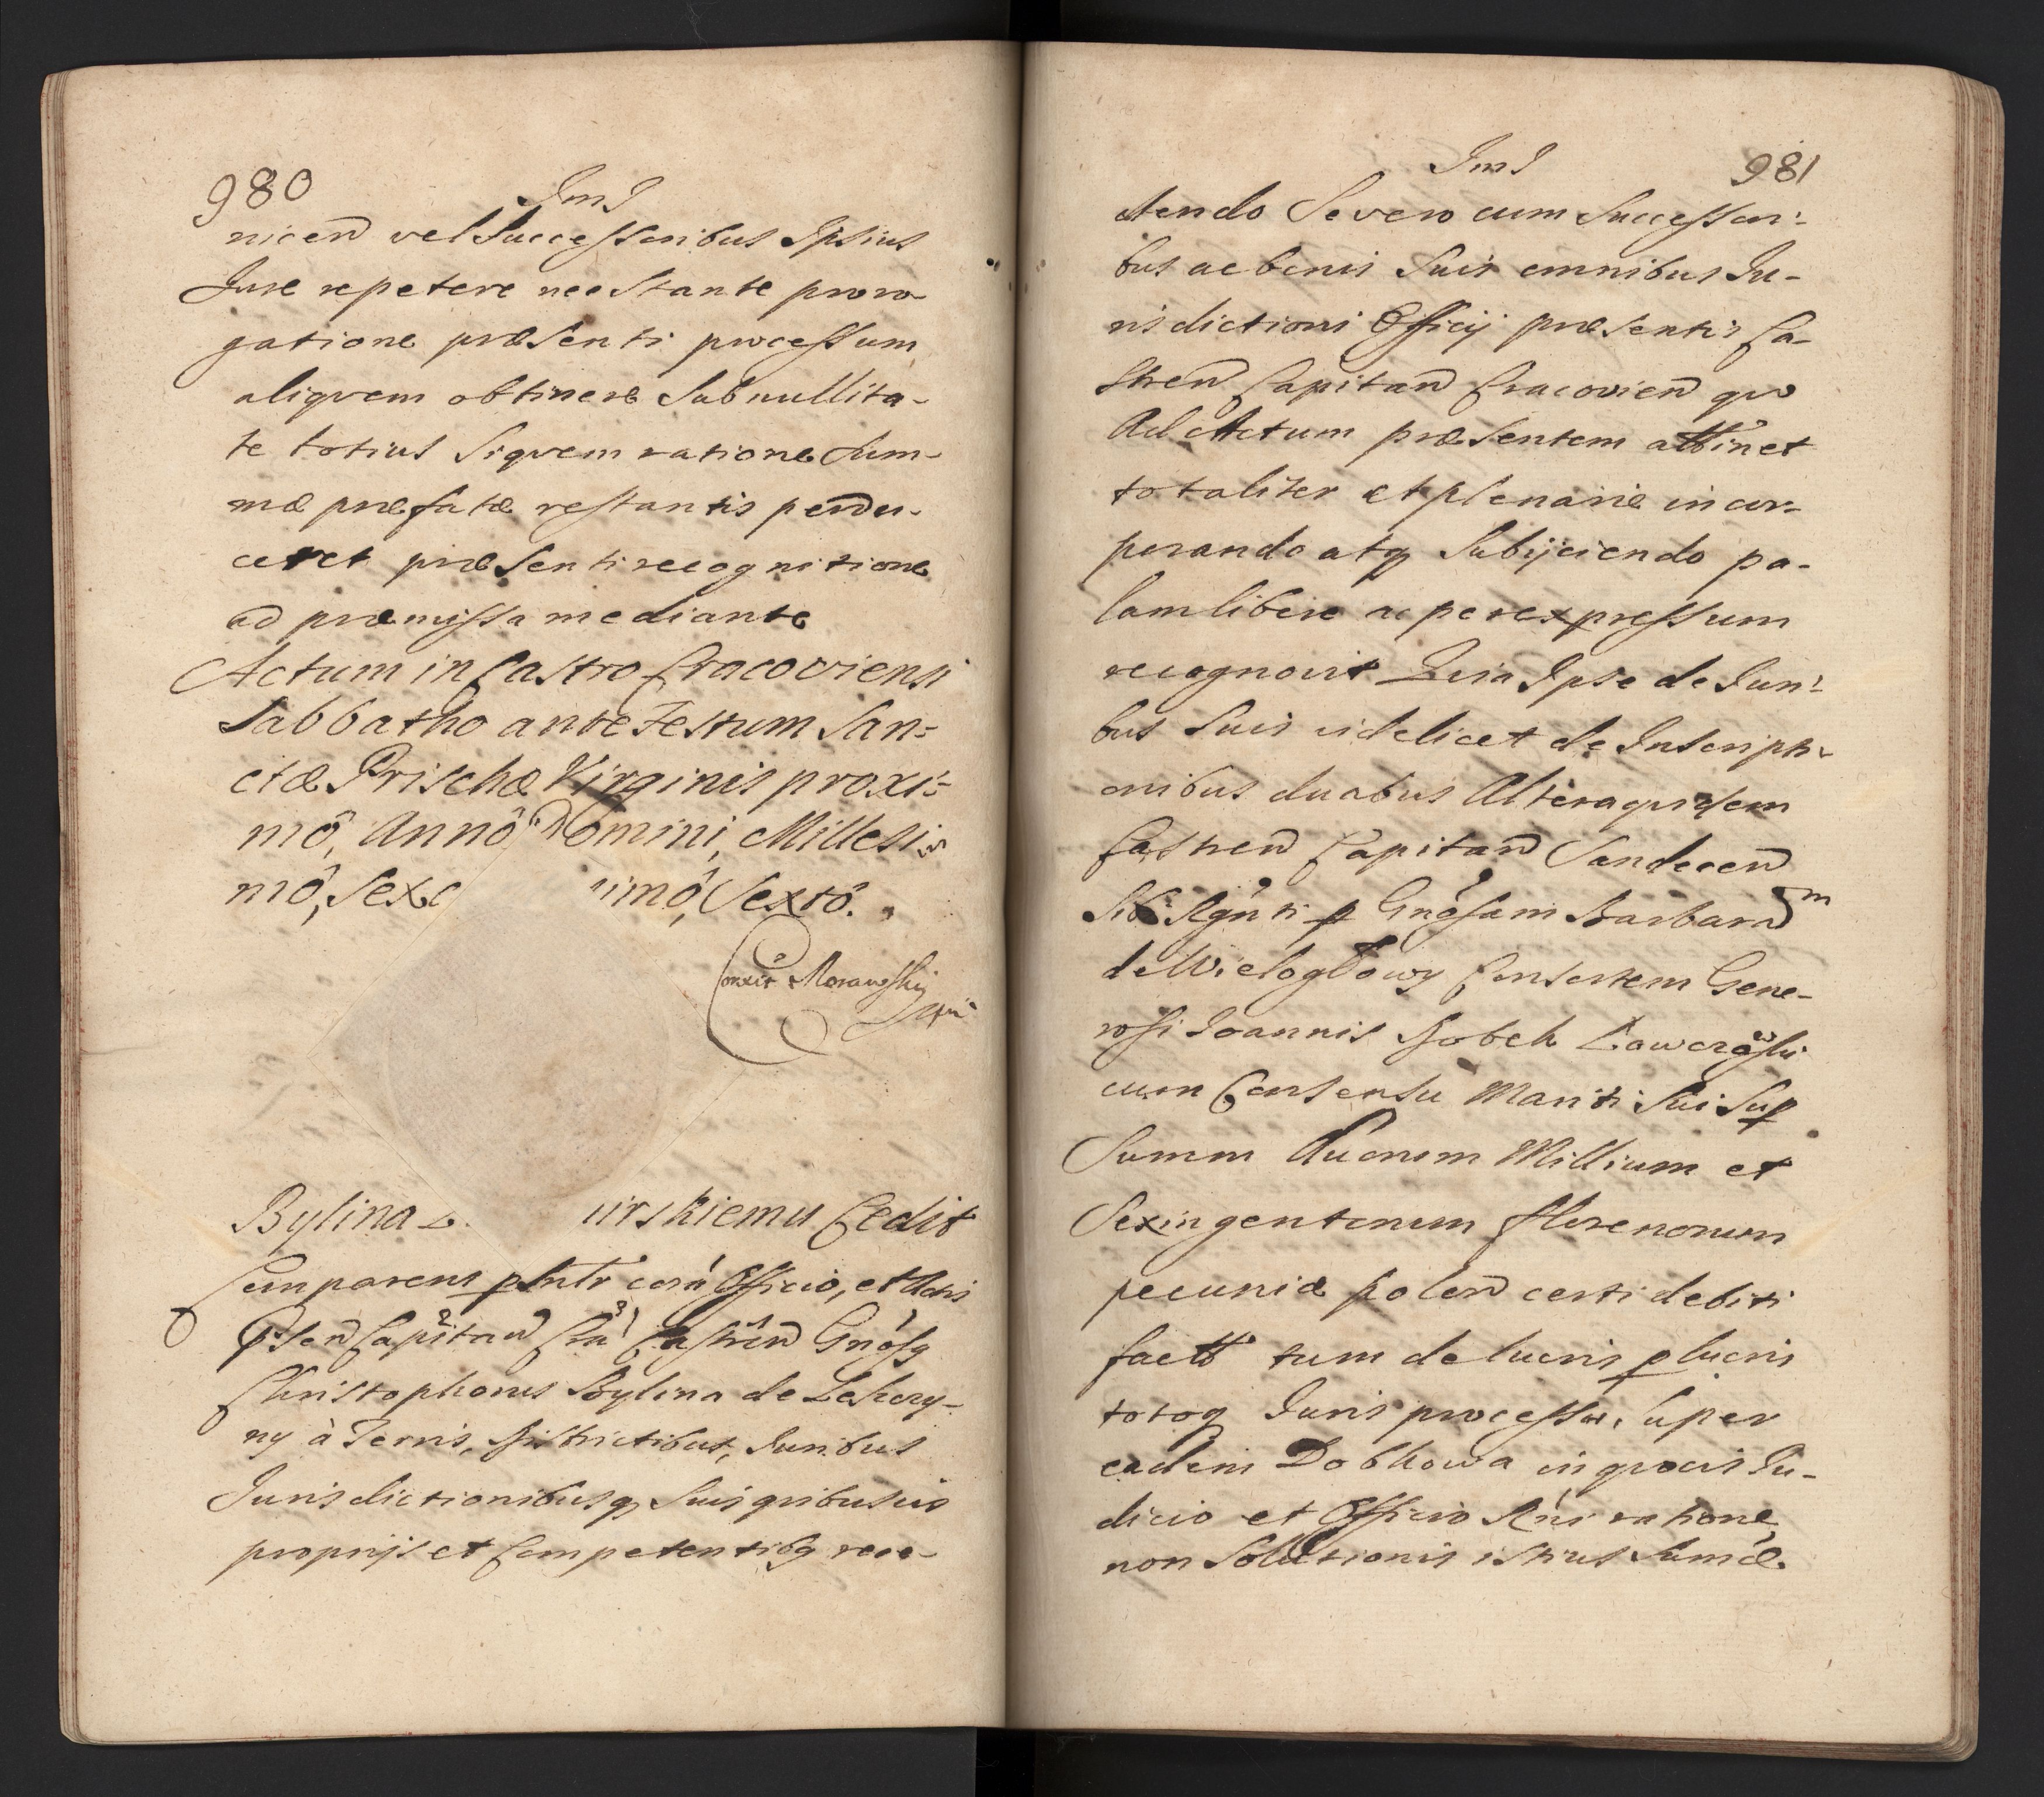 980
nicen vel Successoribus Ipsius
Jure repetere nec Stante proro-
gatione præsenti processum
aliqvem obtinere Sub nullita-
te totius Siqvem ratione Sum-
mæ præfatæ restantis perdu-
ceret præsenti recognitione
ad præmissa mediante
Actum in Castro Cracoviensi
Sabbatho ante Festum San-
ctæ Prischæ Virginis proxi-
mô, Annô Domini, Millesi-
mô, Sexc imô, Sextô.
Morawskij
Bylina urskiemu Cedit
Comparens pntr corã Officio, et Actis
Capitan Castren Gnosq
Christophorus Bylina de Leszczy-
ny à Terris, Districtibus, Juribus
Jurisdictionibusq Suis qvibusvis
proprijs et Competentibq rece-
981
dendo Se vero cum Successori-
bus ac bonis Suis omnibus Ju-
risdictioni Officij præsentis Ca-
stren Capitan Cracovien qvo
Ad Actum præsentem attinet
totaliter et plenarie incor-
porando atq Subijciendo pa-
lam libere ac per expressum
recognovit Qvia Ipse de Juri-
bus Suis videlicet de Inscripti-
onibus duabus Altera qvidem
Castren Capitan Sandecen
Sibi Rgnti p Gnosam Barbaram
de Wielogłowy Consortem Gene-
rosi Joannis
cum Consensu Mariti Sui Sup
Summ duorum Millium et
Sexingentorum florenorum
pecuniæ polon certi debiti
fact tum de lucris p lucris
totoq Juris processu, Super
eadem Dobkowa in qvovis Ju-
dicio et Officio Rni ratione
non Solutionis istius Sumæ